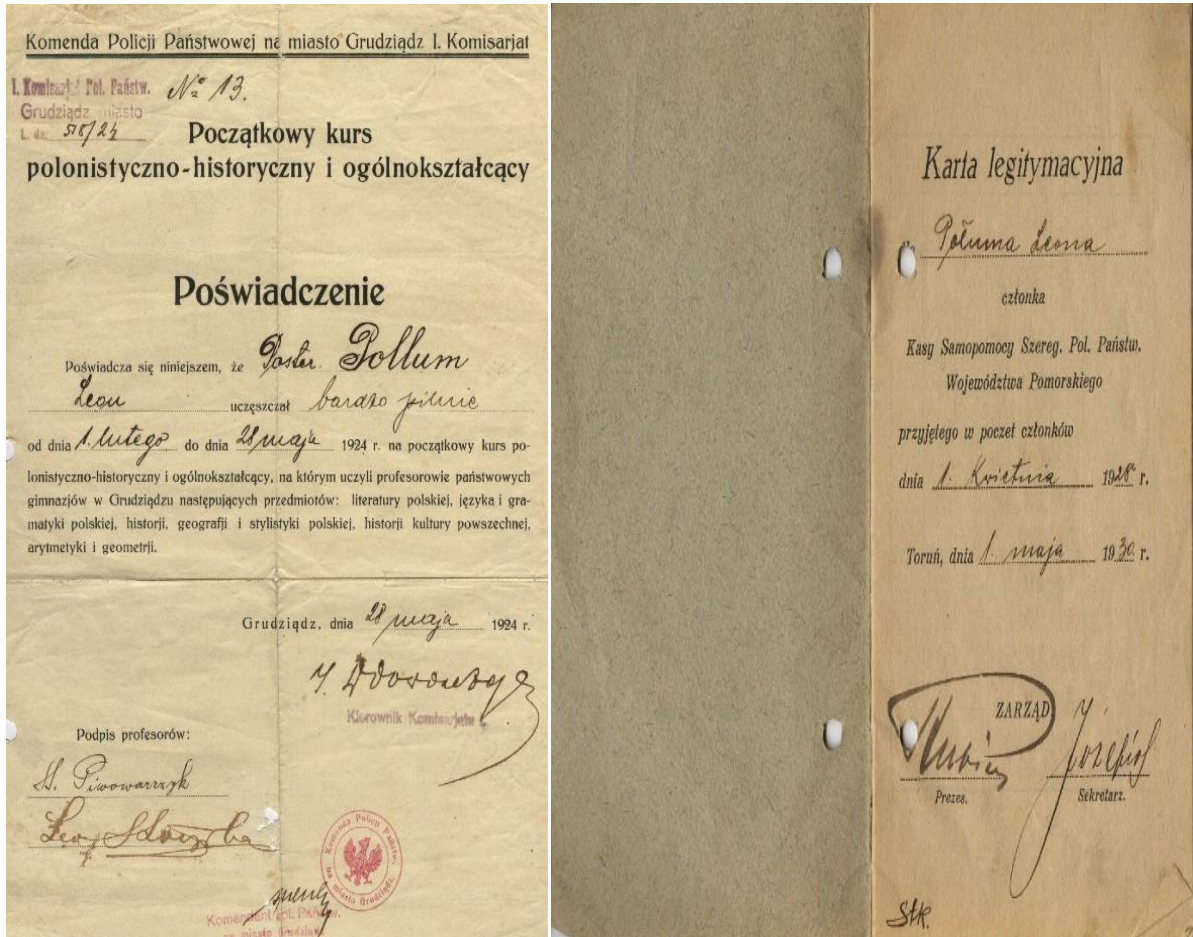 Komenda Policji Państwowej na miasto Grudziądz I. Komisarjat
I. Komisarjat Pol. Państw.
Grudziądz miasto
L. dz. 518/24
No 13.
Początkowy kurs
polonistyczno-historyczny i ogólnokształcący
Poświadczenie
Poświadcza się niniejszem, że Poster. Pollum
Leon uczęszczał bardzo pilnie
od dnia 1. lutego do dnia 28 maja 1924 r. na początkowy kurs po-
lonistyczno-historyczny i ogólnokształcący, na którym uczyli profesorowie państwowych
gimnazjów w Grudziądzu następujących przedmiotów: literatury polskiej, języka i gra-
matyki polskiej, historji, geografji i stylistyki polskiej, historji kultury powszechnej,
arytmetyki i geometrji.
Grudziądz, dnia 28 maja 1924 r.
Kierownik Komisarjatu
Podpis profesorów:
St. Piwowarczyk
Leon
Komenda Policji Państw.
na miasto Grudziądz
Komendant Pol. Państw.
na miasto Grudziądz
Karta legitymacyjna
Połuma Leona
członka
Kasy Samopomocy Szereg. Pol. Państw.
Województwa Pomorskiego
przyjętego w poczet członków
dnia 1. Kwietnia 1928 r.
Toruń, dnia 1. maja 1930 r.
ZARZĄD
Prezes.
Sekretarz.